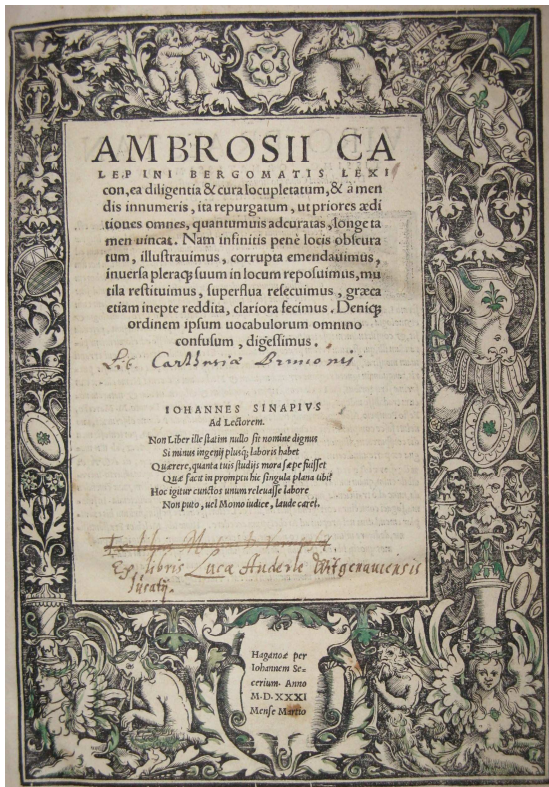 AMBROSII CA
LEPINI BERGOMATIS LEXI
con, ea diligentia & cura locupletatum, & à men
dis innumeris, ita repurgatum, ut priores ædi
tiones omnes, quantumuis adcuratas, longe ta
men uincat. Nam infinitis penè locis obscura
tum, illustrauimus, corrupta emendauimus,
inuersa pleraqꝫ suum in locum reposuimus, mu
tila restituimus, superflua resecuimus, græca
etiam inepte reddita, clariora fecimus. Deniqꝫ
ordinem ipsum uocabulorum omnino
confusum, digessimus.
Lib. Carthusiæ Brunonis
IOHANNES SINAPIVS
Ad Lectorem.
Non Liber ille statim nullo sit nomine dignus
Si minus ingenij plusqꝫ; laboris habet
Quærere, quanta tuis studijs mora sæpe fuisset
Quæ facit in promptu hic singula plana tibi?
Hoc igitur cunctos unum releuasse labore
Non puto, uel Momo iudice, laude caret.
Ex libris
Ex libris Lucæ Anderle Wittgenauiensis
Haganoæ per
Iohannem Se-
cerium. Anno
M.D.XXXI
Mense Martio